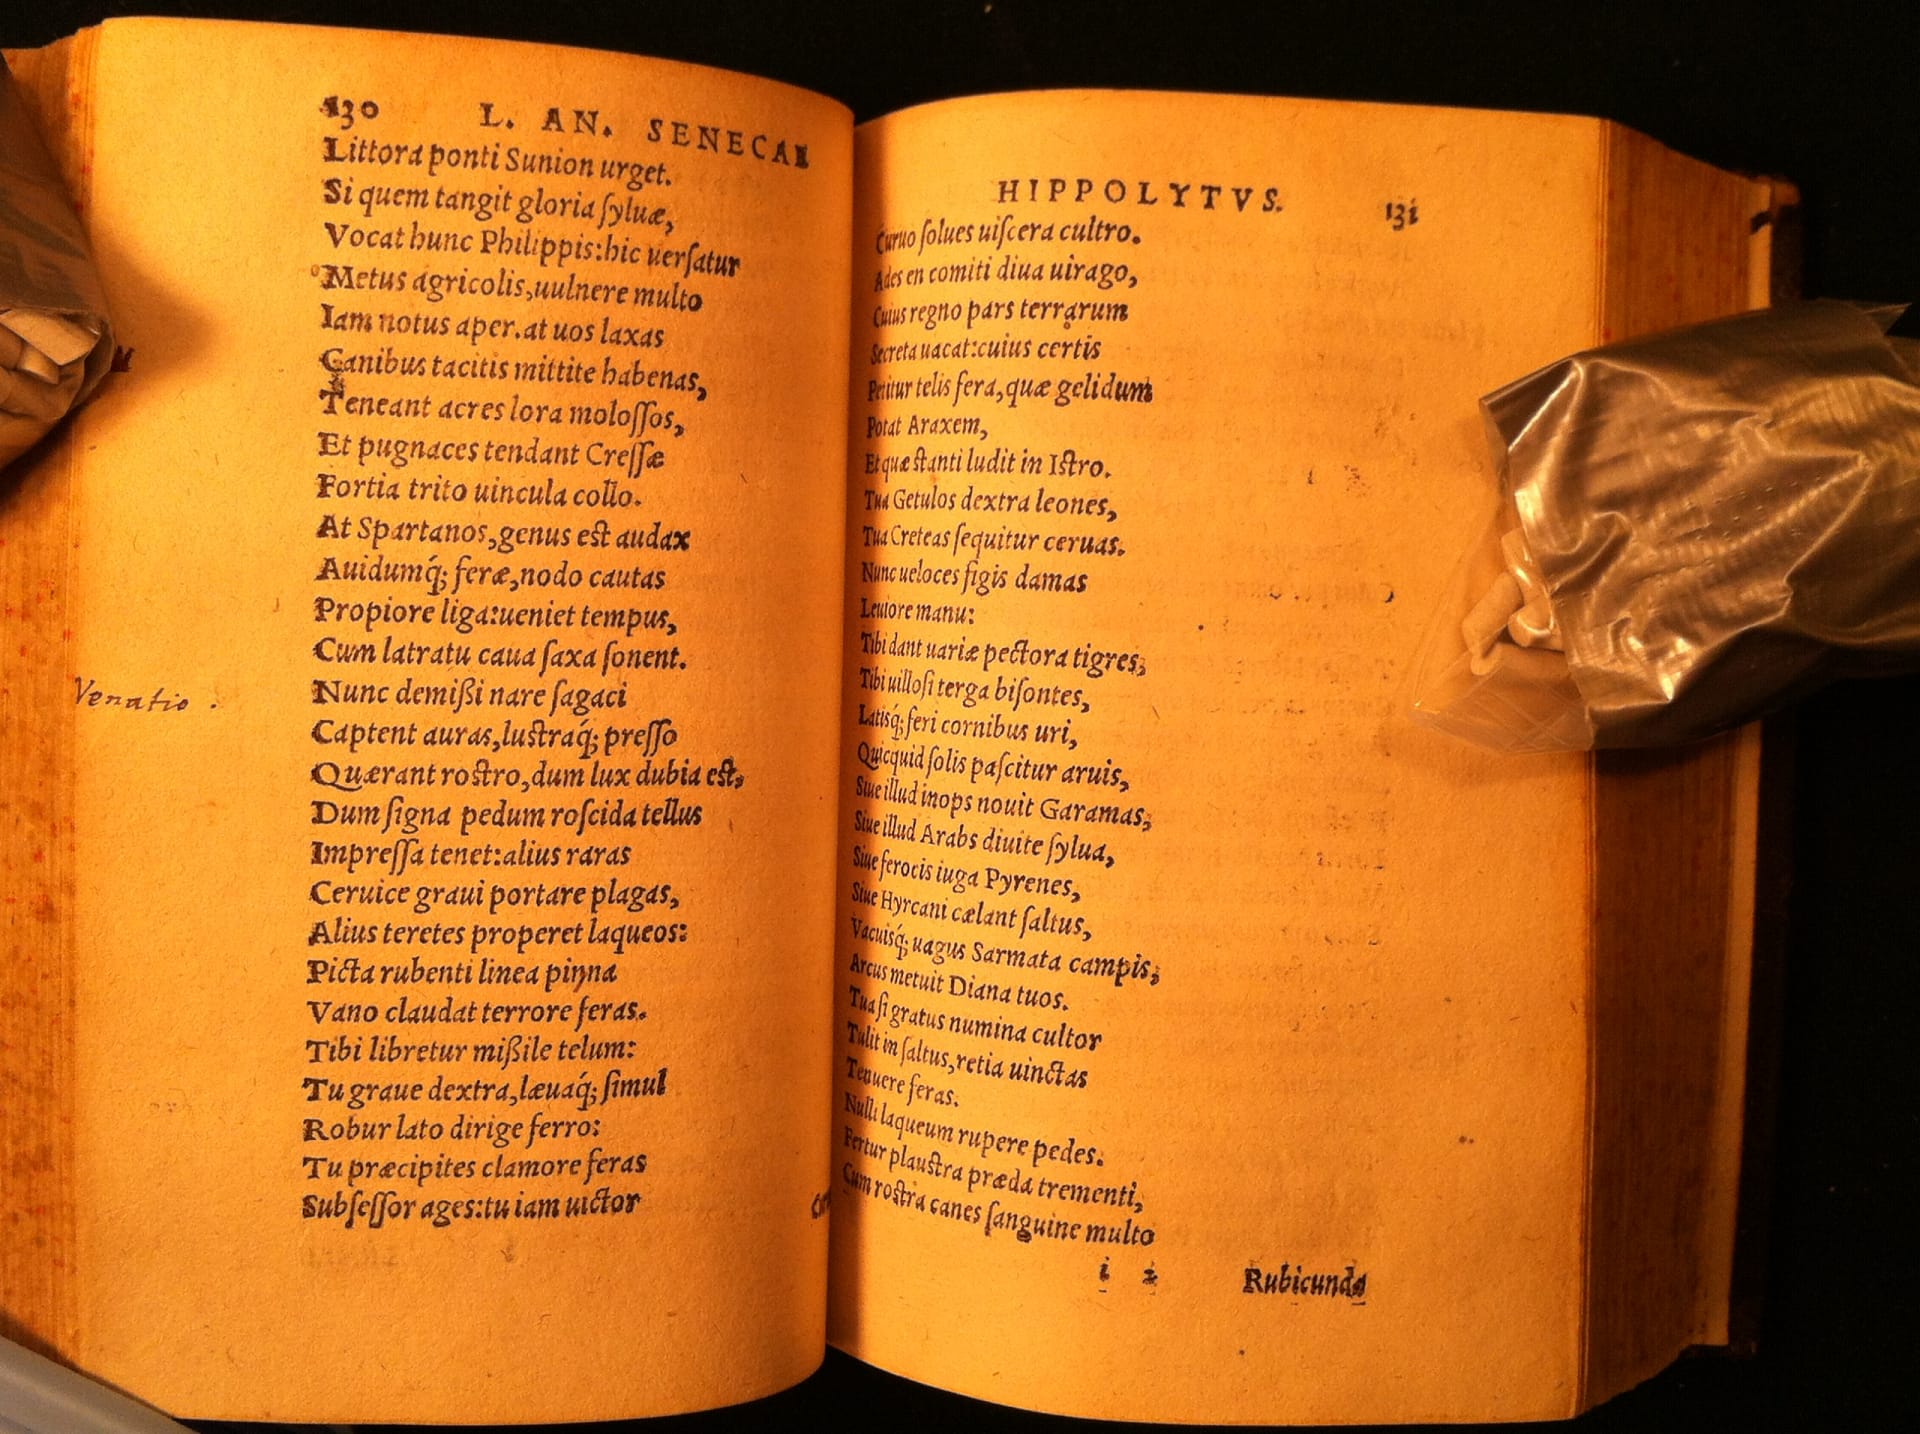 130 L. AN. SENECAE
Littora ponti Sunion urget.
Si quem tangit gloria ſyluæ,
Vocat hunc Philippis:hic uerſatur
Metus agricolis,uulnere multo
Iam notus aper.at uos laxas
Canibus tacitis mittite habenas,
Teneant acres lora moloſſos,
Et pugnaces tendant Creſſæ
Fortia trito uincula collo.
At Spartanos,genus est audax
Auidumq́; feræ,nodo cautas
Propiore liga:ueniet tempus,
Cum latratu caua ſaxa ſonent.
Venatio.
Nunc demißi nare ſagaci
Captent auras,lustraq́; preſſo
Quærant rostro,dum lux dubia est,
Dum ſigna pedum roſcida tellus
Impreſſa tenet:alius raras
Ceruice graui portare plagas,
Alius teretes properet laqueos:
Picta rubenti linea pinna
Vano claudat terrore feras.
Tibi libretur mißile telum:
Tu graue dextra,læuaq́; ſimul
Robur lato dirige ferro:
Tu præcipites clamore feras
Subſeſſor ages:tu iam uictor
HIPPOLYTVS. 131
Curuo ſolues uiſcera cultro.
Ades en comiti diua uirago,
Cuius regno pars terrarum
Secreta uacat:cuius certis
Petitur telis fera,quæ gelidum
Potat Araxem,
Et quæ stanti ludit in Istro.
Tua Getulos dextra leones,
Tua Creteas ſequitur ceruas.
Nunc ueloces figis damas
Leuiore manu:
Tibi dant uariæ pectora tigres,
Tibi uilloſi terga biſontes,
Latisq́; feri cornibus uri,
Quicquid ſolis paſcitur aruis,
Siue illud inops nouit Garamas,
Siue illud Arabs diuite ſylua,
Siue ferocis iuga Pyrenes,
Siue Hyrcani cælant ſaltus,
Vacuisq́; uagus Sarmata campis,
Arcus metuit Diana tuos.
Tua ſi gratus numina cultor
Tulit in ſaltus,retia uinctas
Tenuere feras.
Nulli laqueum rupere pedes.
Fertur plaustra præda trementi,
Cum rostra canes ſanguine multo
i 2 Rubicunda